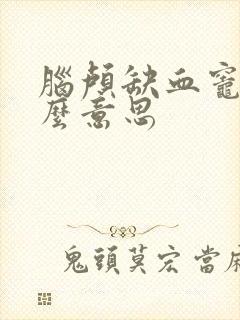 腦顱缺血竈
麼意思
鬼頭莫宏當麻